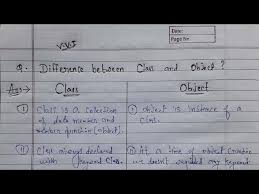 V.V.I
Date:
Page No.
Q. Difference between Class and Object?
Ans → Class Object
(I) Class is a collection (I) object is instance of a
of data member and class.
member function (object).
(II) Class always declared (II) At a time of object creation
with keyword class. we doesn't any keyword